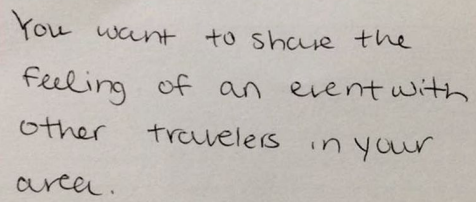 You want to share the
feeling of an event with
other travelers in your
area.